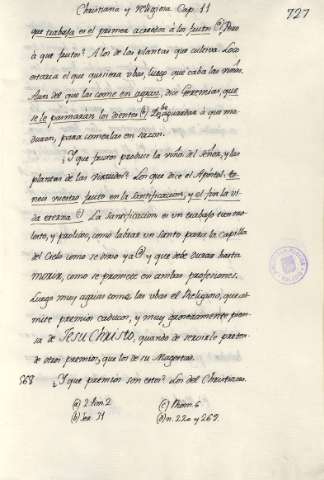 Christiana y religiosa Cap. 11
727
que trabaja es el primer acreedor à los frutos (a) Pero
à que frutos? A los de las plantas que cultiva. Loco
estaria el que quisiera vbas, luego que caba las viñas.
Aun del que las come en agraz, dice Geremias que
se le pasmaràn los dientes (b) Debe aguardar à que ma-
duren, para comerlas en sazon.
¿Y que frutos produce la viña del Señor, y las
plantas de las virtudes? Los que dice el Apostol: te-
neis vuestro fruto en la santificacion, y el fin la vi-
da eterna (c) La santificacion es un trabajo
y como labrar un santo para la capilla
del Cielo como se dixo ya (d) y que debe durar hasta
morir, como se promete en ambas profesiones.
Luego muy agraz come las vbas el Religioso, que ad-
mite premios caducos, y muy groseramente pien-
sa de Jesu Christo, quando de servirle preten-
de otros premios, que los de su Magestad.
568 ¿Y que premios son estos? Los del Christiano
(a) 2 Tim. 2 (c) Rom. 6
(b) Jer. 31 (d) n. 220 y 267.